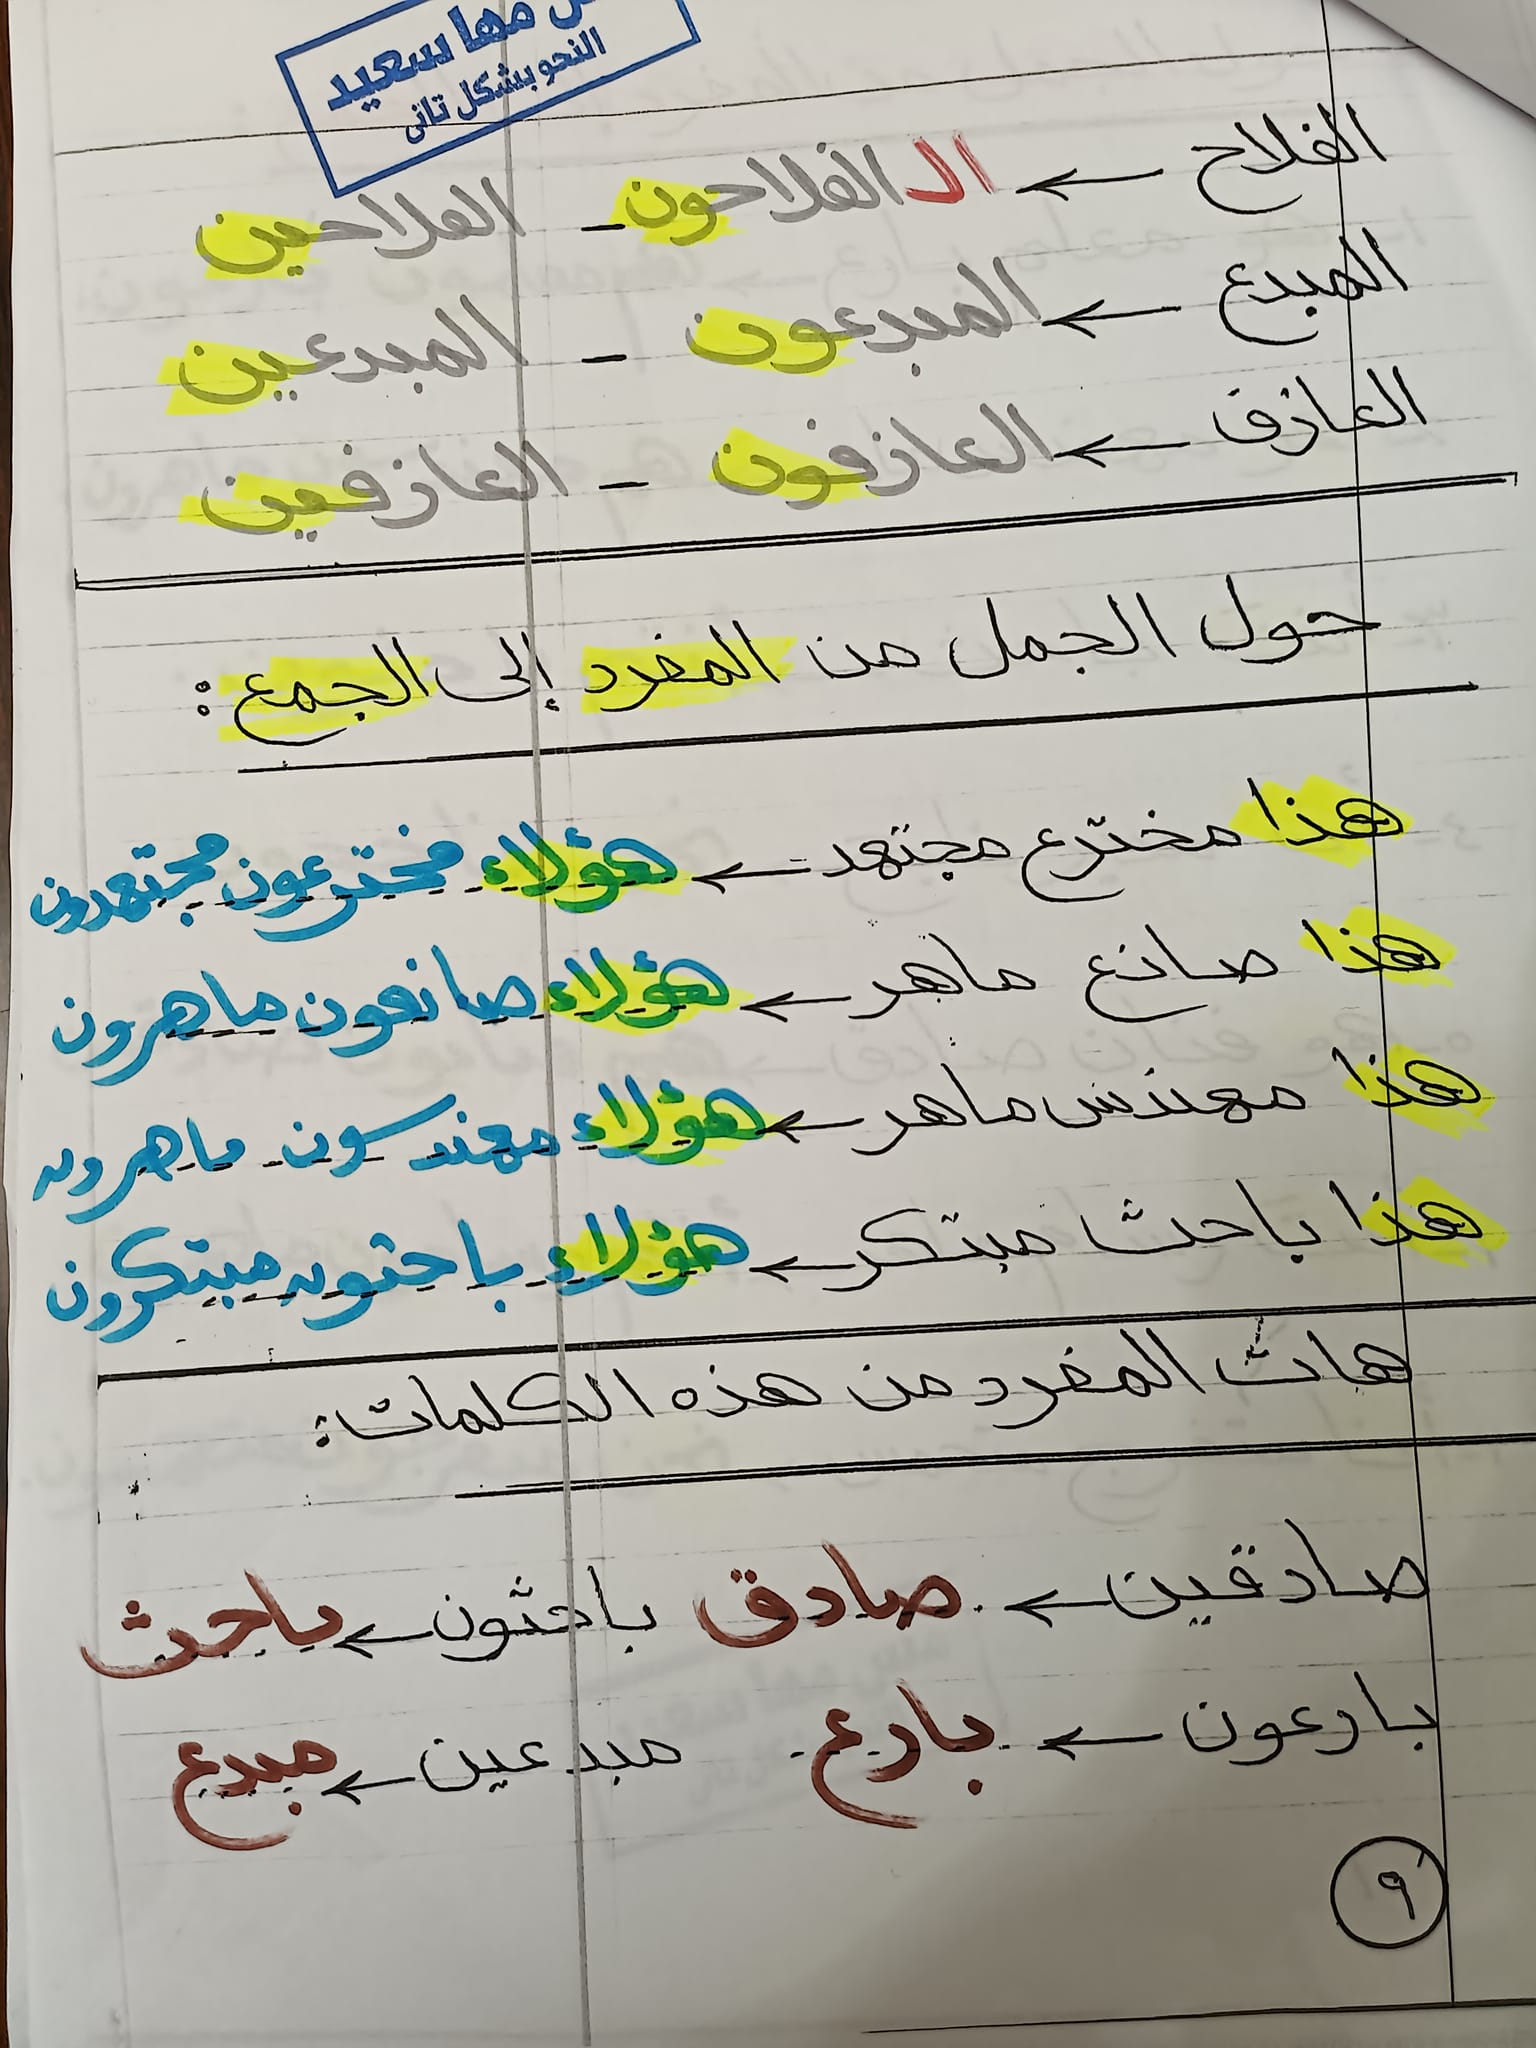 مها سعيد
النحو بشكل تانى
الفلاح ← الـ الفلاحون - الفلاحين
المبدع ← المبدعون - المبدعين
العازف ← العازفون - العازفين
حول الجمل من المفرد إلى الجمع :
هذا مخترع مجتهد ← هؤلاء مخترعون مجتهدون
هذا صانع ماهر ← هؤلاء صانعون ماهرون
هذا مهندس ماهر ← هؤلاء مهندسون ماهرون
هذا باحث مبتكر ← هؤلاء باحثون مبتكرون
هات المفرد من هذه الكلمات :
صادقين ← صادق باحثون ← باحث
بارعون ← بارع مبدعين ← مبدع
٩